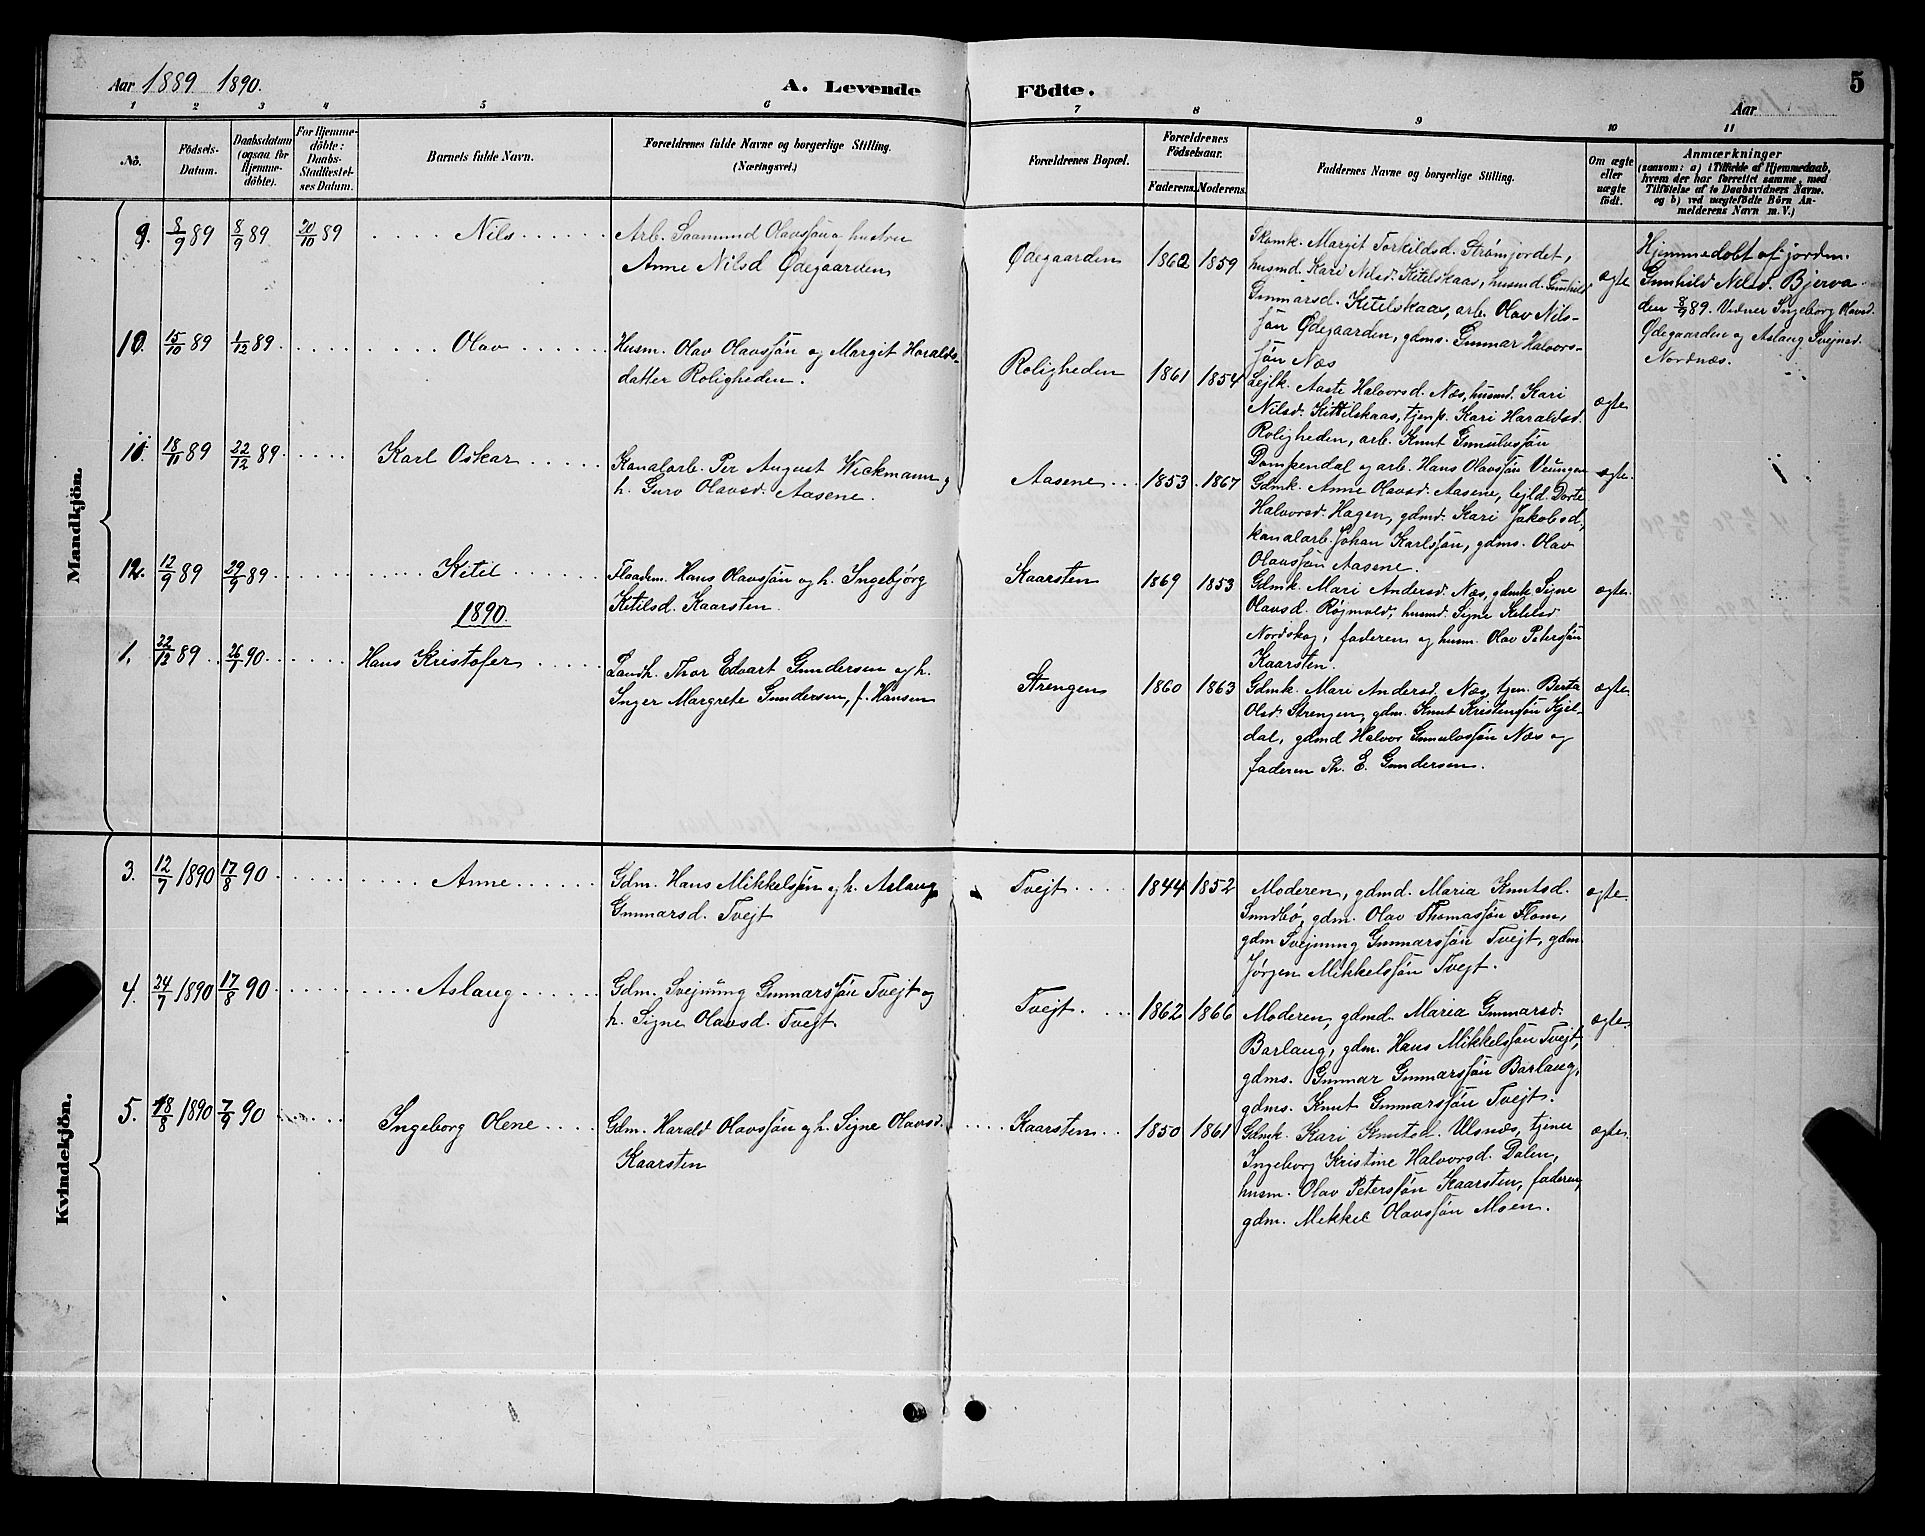 Aar 1889 1890.
A. Levende Födte.
Aar
5
1 2 3 4 5 6 7 8 9 10 11
No.
Födsels-Datum.
Daabsdatum (ogsaa for Hjemme-döbte).
For Hjemme-döbte: Daabs-Stadfæstel-ses Datum.
Barnets fulde Navn.
Forældrenes fulde Navne og borgerlige Stilling. (Næringsvei.)
Forældrenes Bopæl.
Forældrenes Födselsaar.
Faderens. Moderens.
Faddernes Navne og borgerlige Stilling.
Om ægte eller uægte födt.
Anmærkninger
(saasom: a) i Tilfælde af Hjemmedaab,
hvem der har forrettet samme, med
Tilföielse af to Daabsvidners Navne.
og b) ved uægtefödte Börn An-
melderens Navn m. V.)
Mandkjön.
9. 8/9 89 8/9 89 20/10 89 Nils
Arb. Saamund Olavsøn og hustru
Anne Nilsd Ødegaarden
Ødegaarden 1862 1859
Skomk. Margit Torkildsd. Strømjordet,
husmd. Kari Nilsd. Kitilskaas, husmd. Gunhild
Gunnarsd. Kitilskaas, arb. Olav Nils-
søn Ødegaarden, gdms. Gunnar Halvors-
søn Næs
ægte
Hjemmedøbt af jordm.
Gunhild Nilsd. Bjerva
den 8/9 89. Vidner Ingeborg Olavsd.
Ødegaarden og Aslaug Svejnsd.
Nordnæs.
10. 15/10 89 1/12 89 Olav
Husm. Olav Olavssøn og Margit Haralds-
datter Roligheden.
Roligheden 1861 1854
Lejlk. Aaste Halvorsd. Næs, husmd. Kari
Nilsd. Kittilskaas, tjenp. Kari Haraldsd.
Roligheden, arb. Knut Gunulvssøn
Dompendal og arb. Hans Olavssøn Veungen
ægte
11. 18/11 89 22/12 89 Karl Oskar
Kanalarb. Per August Wickmann og
h. Guro Olavsd. Aasene.
Aasene 1853 1867
Gdmk. Anne Olavsd. Aasene, lejld. Dorte
Halvorsd. Hagen, gdmd. Kari Jakobsd,
kanalarb. Johan Karlssøn, gdms. Olav
Olavssøn Aasene.
ægte
12. 12/9 89 29/9 89 Kitil
Flaadem. Hans Olavssøn og h. Ingebjørg
Kitilsd. Kaarsten.
Kaarsten 1869 1853
Gdmk. Mari Andersd. Næs, gdmk Signe
Olavsd. Røjmold, husmd. Signe Kitilsd
Nordskog, faderen og husm. Olav Peterssøn
Kaarsten.
ægte
1890.
1. 22/12 89 26/1 90 Hans Kristofer
Landh. Thor Edvart Gundersen og h.
Inger Margrete Gundersen, f. Hansen
Strengen 1860 1863
Gdmk. Mari Andersd. Næs, tjen. Berta
Olsd. Strengen, gdm. Knut Kristenssøn Kjel-
dal, gdmd Halvor Gunulvssøn Næs og
faderen Th. E. Gundersen.
ægte
Kvindekjön.
3. 12/7 1890 17/8 90 Anne
Gdm. Hans Mikkelssøn og h. Aslaug
Gunnarsd. Tvejt
Tvejt 1844 1852
Moderen, gdmd. Maria Knutsd.
Sundbø, gdm. Olav Thomassøn Flom,
gdm Svejnung Gunnarssøn Tvejt, gdm.
Jørgen Mikkelssøn Tvejt.
ægte
4. 24/7 1890 17/8 90 Aslaug
Gdm. Svejnung Gunnarssøn Tvejt og
h. Signe Olavsd. Tvejt
Tvejt. 1862 1866
Moderen, gdmd. Maria Gunnarsd.
Barlaug, gdm. Hans Mikkelssøn Tvejt,
gdms. Gunnar Gunnarssøn Barlaug,
gdms. Knut Gunnarssøn Tvejt.
ægte
5. 18/8 1890 7/9 90 Ingeborg Olene
Gdm. Harald Olavssøn og h. Signe Olavsd.
Kaarsten
Kaarsten 1850 1861
Gdmk. Kari Knutsd. Ulsnæs, tjener
Ingeborg Kristine Halvorsd. Dalen,
husm. Olav Peterssøn Kaarsten, faderen,
gdm. Mikkel Olavssøn Moen.
ægte